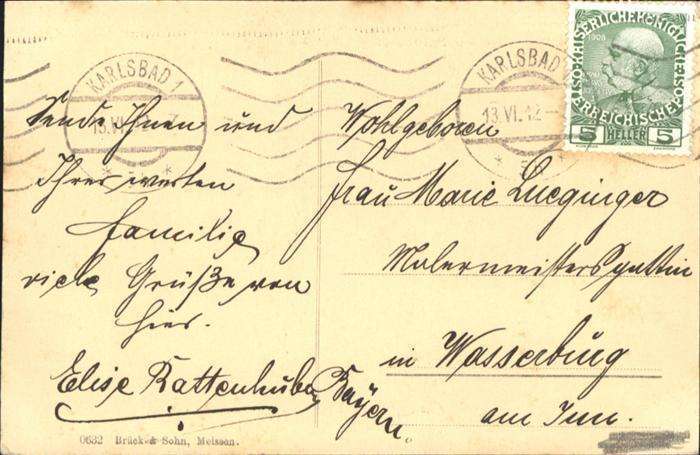 KARLSBAD 1
13.VI.12
KARLSBAD
13.VI.12
1908
KAISERLICHE KÖNIGLICHE
ÖSTERREICHISCHE POST
5 HELLER 5
Sende Ihnen und
Ihrer werten
Familie
viele Grüße von
hier.
Elise Rattenhuber
Wohlgeboren
Frau Marie Lueginger
Malermeistersgattin
in Wasserburg
am Inn.
Bayern.
0632 Brück & Sohn, Meissen.